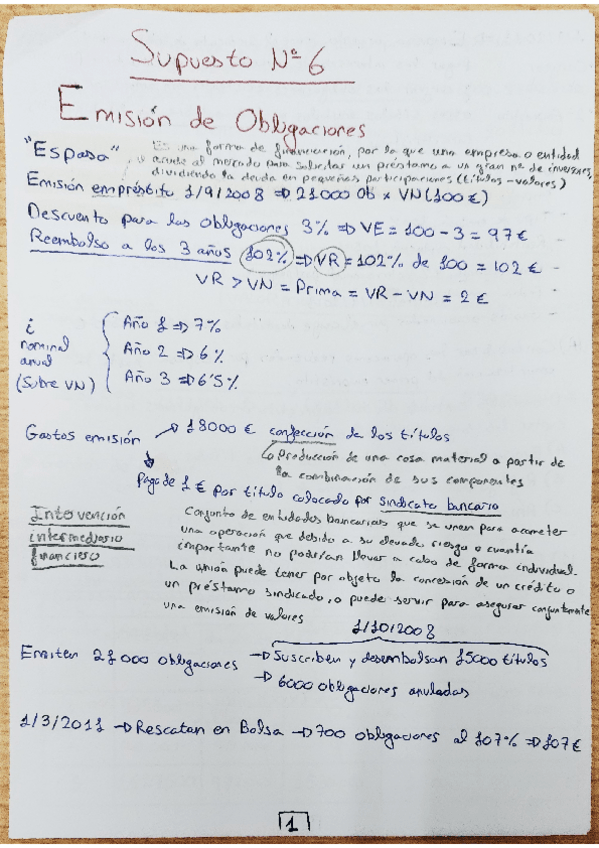 Supuesto Nº 6
Emisión de Obligaciones
"Espasa"
Es una forma de financiación, por la que una empresa o entidad
acude al mercado para solicitar un préstamo a un gran nº de inversores,
dividiendo la deuda en pequeñas participaciones (títulos-valores)
Emisión empréstito 1/9/2008 => 21000 Ob x VN (100 €)
Descuento para las obligaciones 3% => VE = 100 - 3 = 97 €
Reembolso a los 3 años 102% => VR = 102% de 100 = 102 €
VR > VN = Prima = VR - VN = 2 €
i nominal anual (Sobre VN)
Año 1 => 7%
Año 2 => 6%
Año 3 => 6'5%
Gastos emisión → 18000 € confección de los títulos
Producción de una cosa material a partir de
la combinación de sus componentes
Pago de 1 € por título colocado por sindicato bancario
Intervención
intermediario
financiero
Conjunto de entidades bancarias que se unen para acometer
una operación que debido a su elevado riesgo o cuantía
importante no podrían llevar a cabo de forma individual.
La unión puede tener por objeto la concesión de un crédito o
un préstamo sindicado, o puede servir para asegurar conjuntamente
una emisión de valores
1/10/2008
Emiten 21000 obligaciones → Suscriben y desembolsan 15000 títulos
→ 6000 obligaciones anuladas
1/3/2011 → Rescatan en Bolsa → 700 obligaciones al 107% => 107 €
1